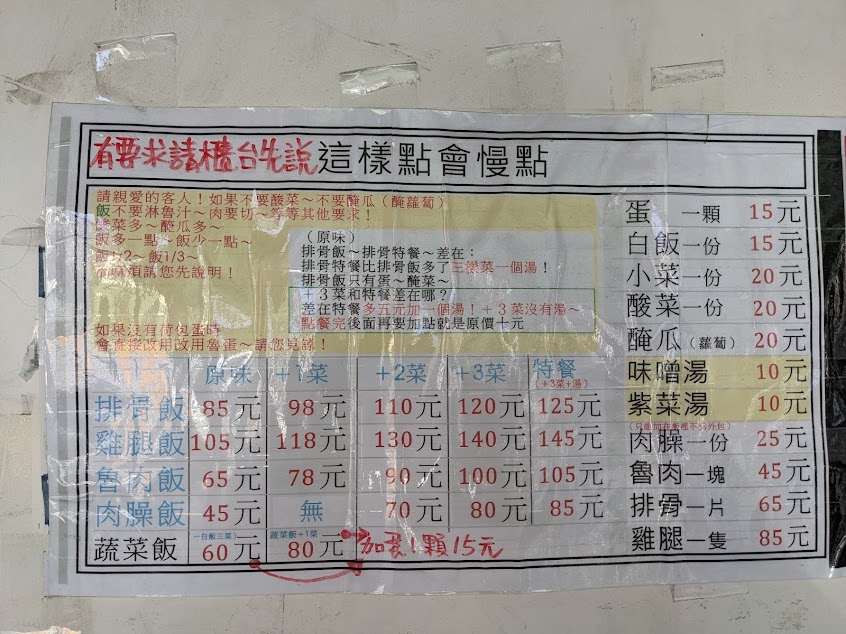 有要求請櫃台先說這樣點會慢點
請親愛的客人！如果不要酸菜～不要醃瓜（醃蘿蔔）
飯不要淋魯汁～肉要切～等等其他要求！
酸菜多～醃瓜多～
飯多一點～飯少一點～
飯1/2～飯1/3～
麻煩請您先說明！
如果沒有荷包蛋時
會直接改用改用魯蛋～請您見諒！
（原味）
排骨飯～排骨特餐～差在：
排骨特餐比排骨飯多了三樣菜一個湯！
排骨飯只有蛋～醃菜～
＋3菜和特餐差在哪？
差在特餐多五元加一個湯！＋3菜沒有湯～
點餐完後面再要加點就是原價十元
原味 +1菜 +2菜 +3菜 特餐
（+3菜+湯）
排骨飯 85元 98元 110元 120元 125元
雞腿飯 105元 118元 130元 140元 145元
魯肉飯 65元 78元 90元 100元 105元
肉臊飯 45元 無 70元 80元 85元
蔬菜飯 （一白飯三菜）60元 蔬菜飯+1菜 80元 加蛋1顆15元
蛋 一顆 15元
白飯一份 15元
小菜一份 20元
酸菜一份 20元
醃瓜（蘿蔔） 20元
味噌湯 10元
紫菜湯 10元
肉臊一份 25元
魯肉一塊 45元
排骨一片 65元
雞腿一隻 85元